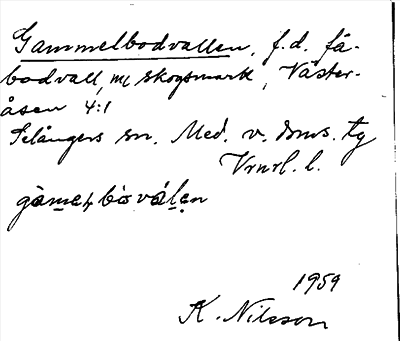 Gammelbodvallen, f.d. fä-
bodvall, m/ skogsmark, Väster-
åsen 4:1
Selångers sn. Med. v. doms. tg
Vrnrl. l.
gàmelbòsválen
1959
K. Nilsson